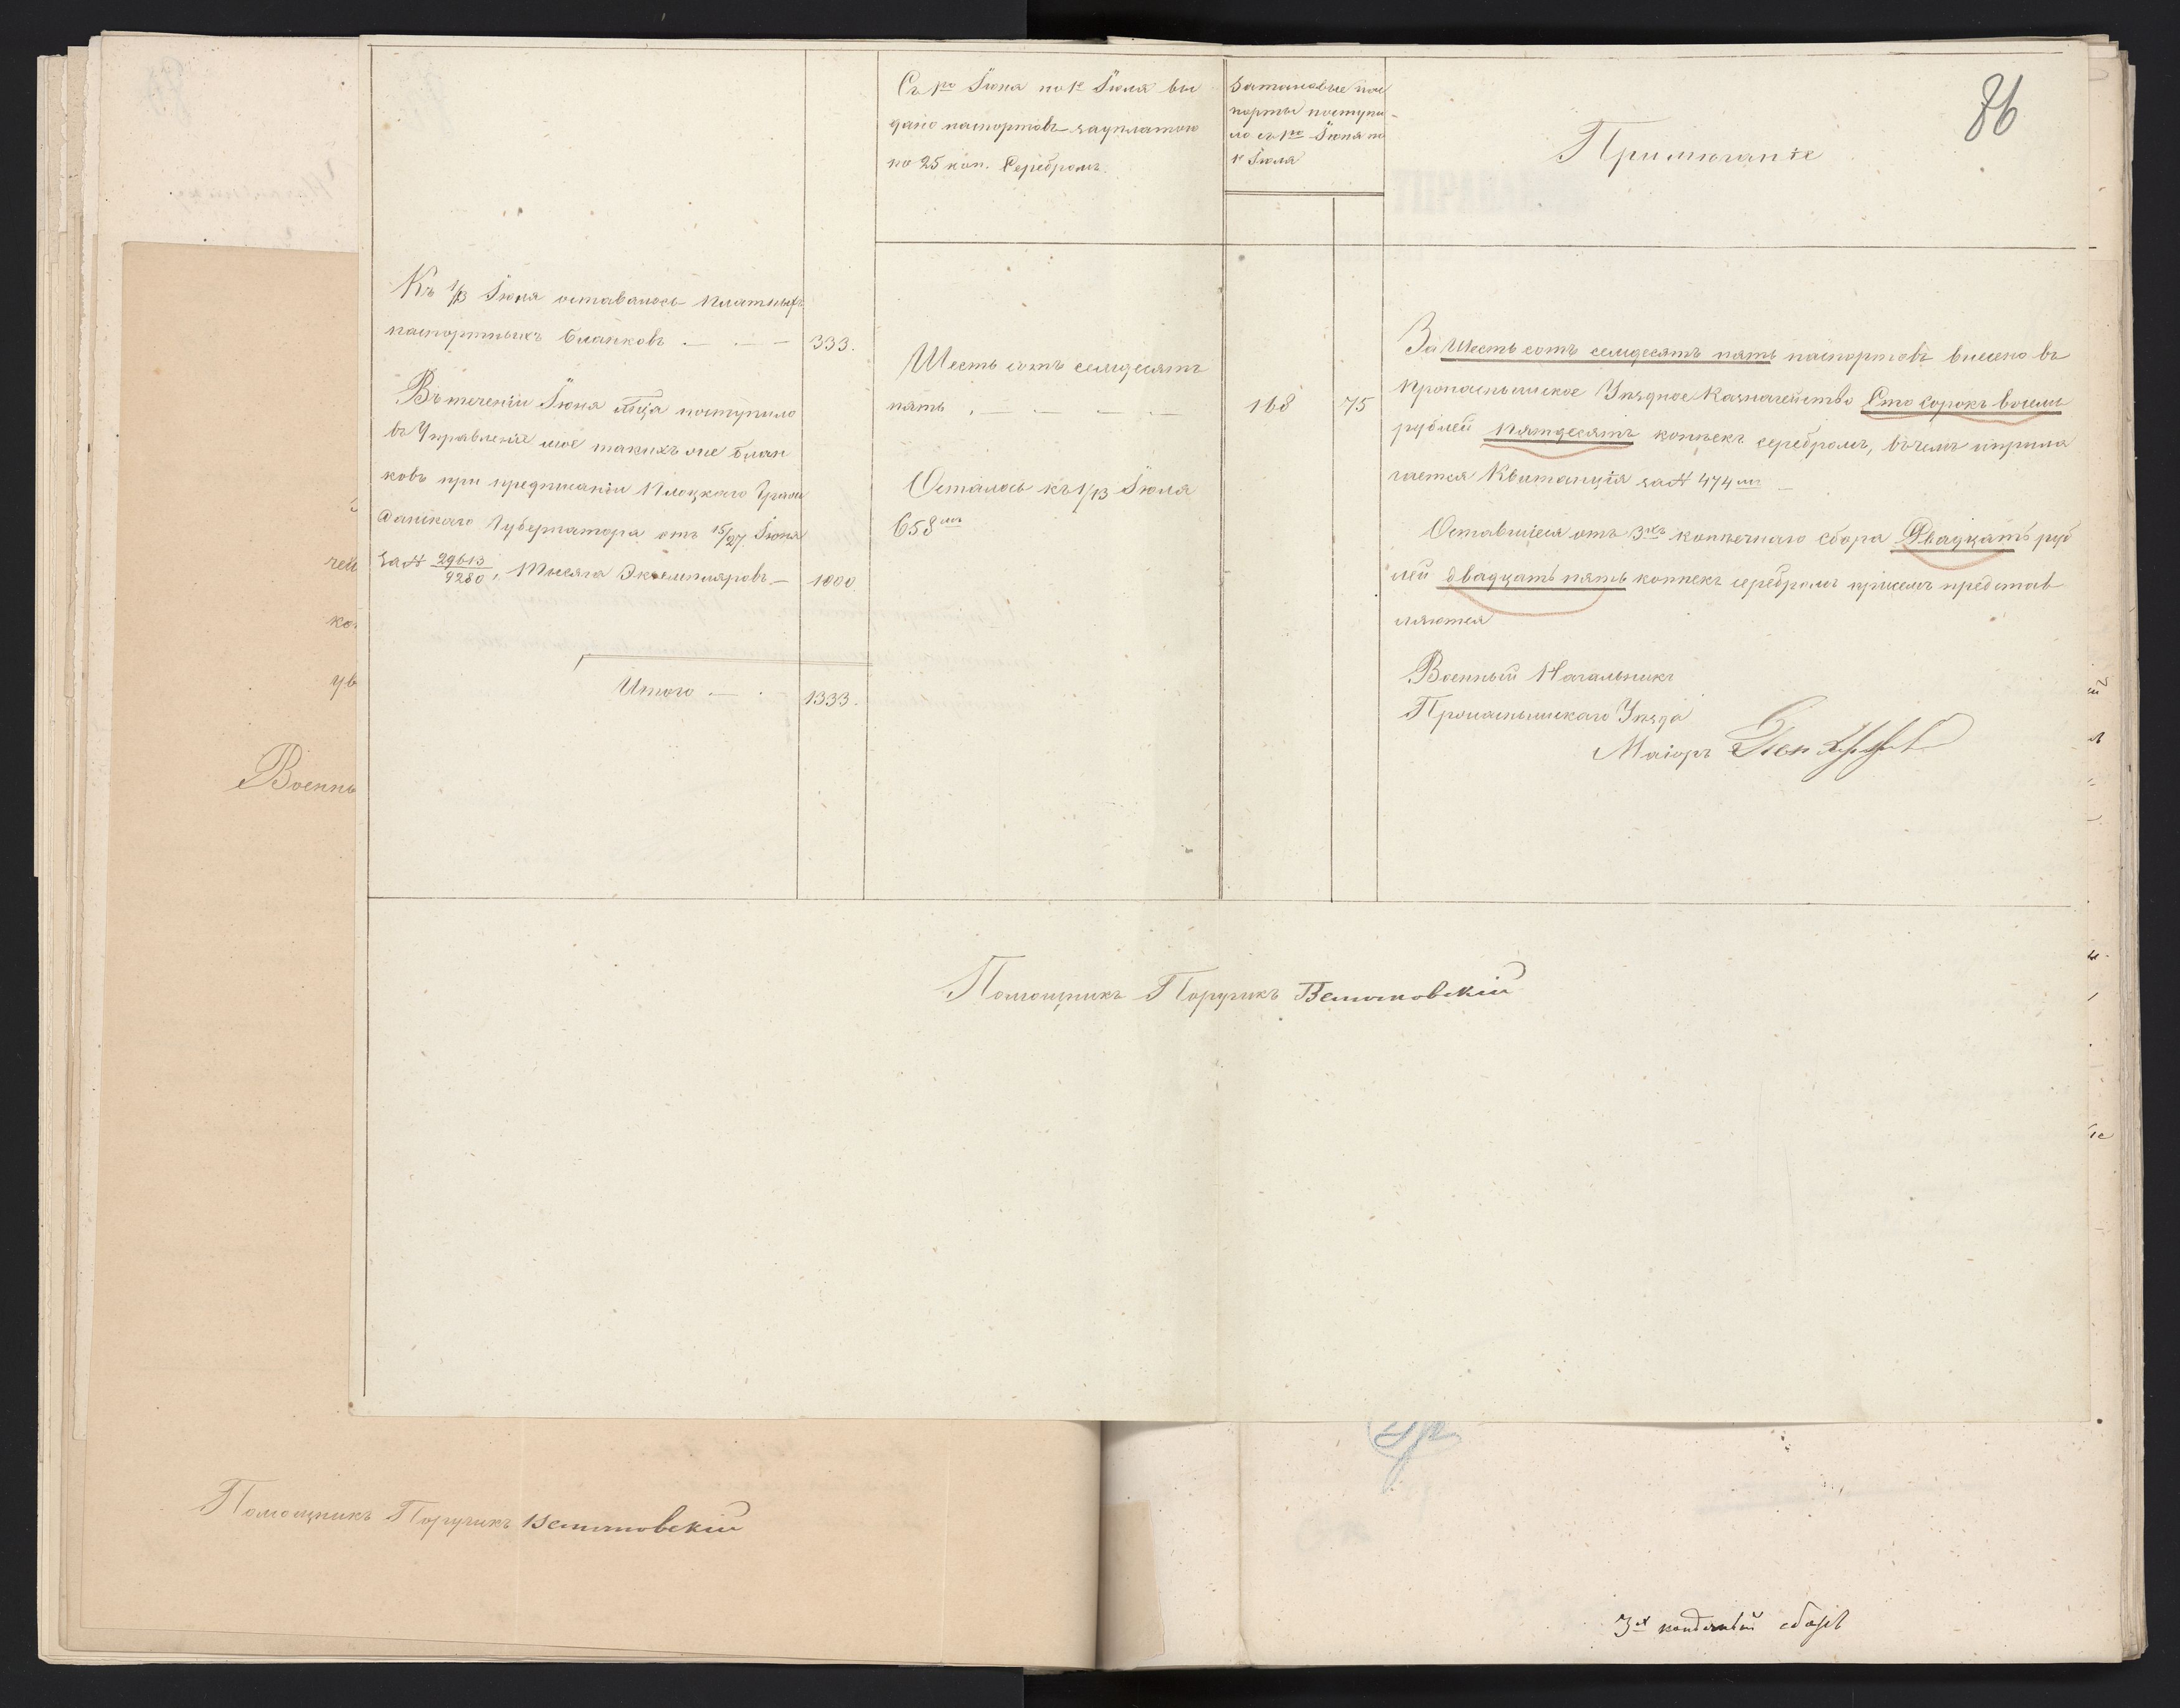 86
Съ 1го Іюня по 1е Іюля вы
дано паспортовъ зауплатою
по 25 коп. Серебромъ.
Затаковые пас
порты поступи-
ло съ 1го Іюня по
1е Іюля
Примѣчаніе
Къ 1/13 Іюня оставалось платныхъ
паспортныхъ бланковъ . — . — 333.
Въ теченіи Іюня мца поступило
въ Управленіе мое такихъ же блан
ковъ при предписаніи Плоцкаго Граж
данскаго Губернатора отъ 15/27 Іюня
за № 29613/9280, Тысяча Экземпляровъ — 1000.
Итого . — . 1333.
Шесть сотъ семдесятъ
пять . — . — . — . — 168 75
Осталось къ 1/13 Іюля
658мь
За Шесть сотъ семдесятъ пять паспортовъ внесено въ
Прснашское Уѣздное Казначейство Сто сорокъ восемь
рублей пятдесятъ копѣекъ серебромъ, въ чемъ и прила
гается Квитанція за № 474мъ
Оставшіеся отъ 3хъ копѣечнаго сбора Двадцать руб
лей двадцать пять копѣекъ серебромъ присемъ представ
ляются
Военный Начальникъ
Уѣзда
Маіоръ
Помощникъ Поручикъ
Военны
Помощникъ Поручикъ
3х сборъ